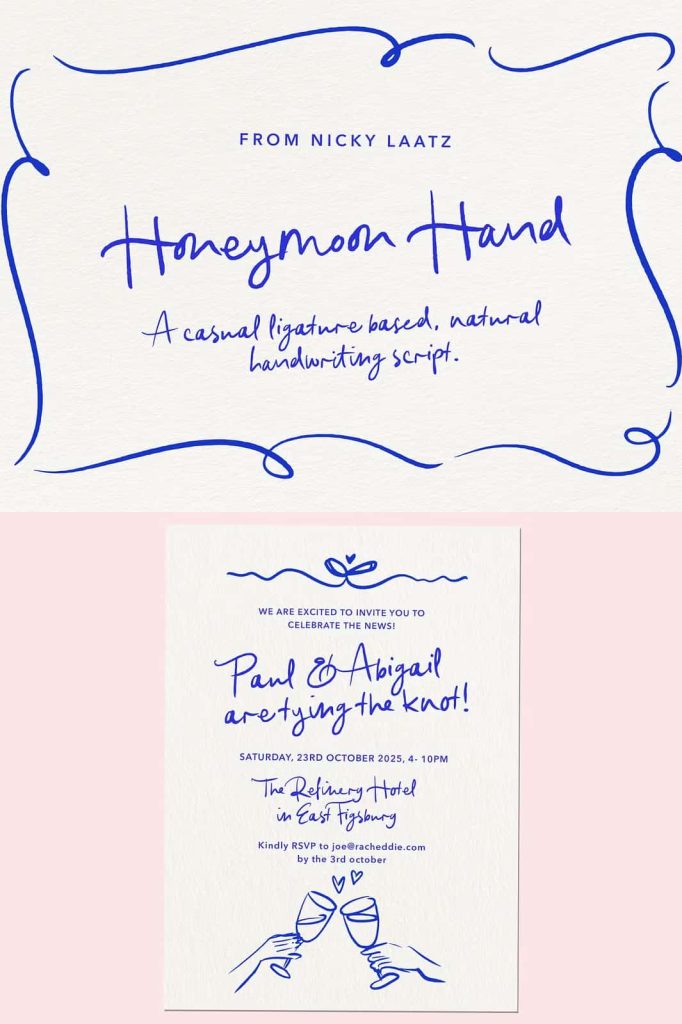 FROM NICKY LAATZ
Honeymoon Hand
A casual ligature based, natural
handwriting script.
WE ARE EXCITED TO INVITE YOU TO
CELEBRATE THE NEWS!
Paul & Abigail
are tying the knot!
SATURDAY, 23RD OCTOBER 2025, 4- 10PM
The Refinery Hotel
in East Figsbury
Kindly RSVP to joe@racheddie.com
by the 3rd october